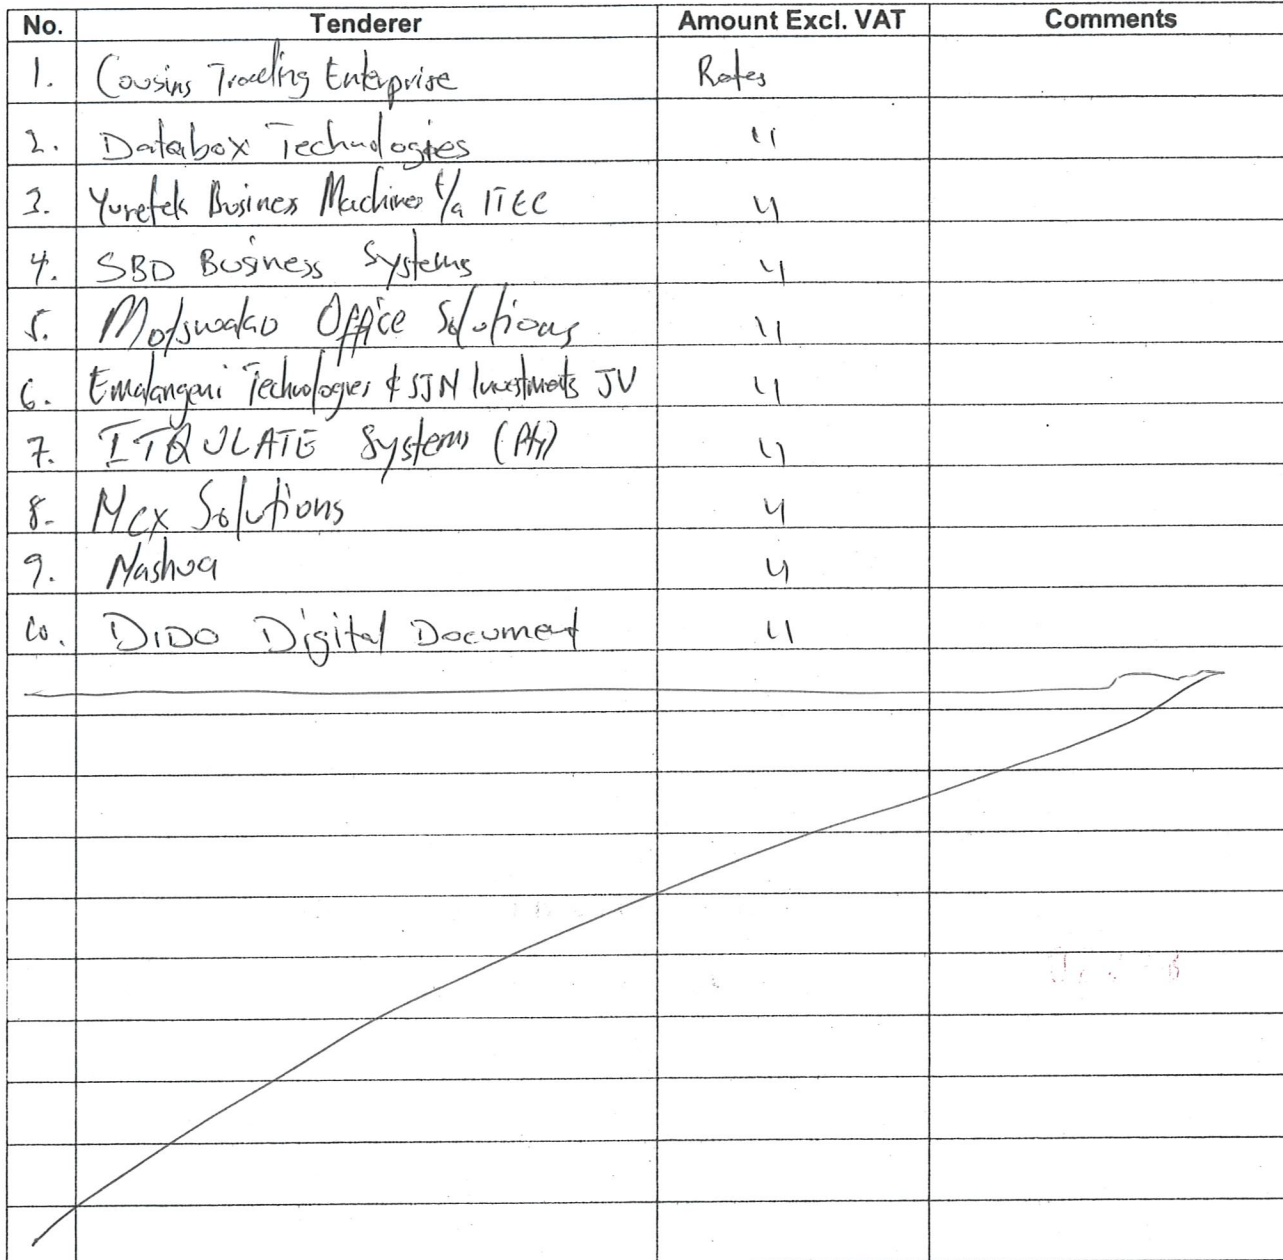 No. Tenderer Amount Excl. VAT Comments
1. Cousins Trading Enterprise Rates
2. Databox Technologies "
3. Yuretek Business Machines t/a ITEC "
4. SBD Business Systems "
5. Motswako Office Solutions "
6. Emalangeni Technologies & SJN Investments JV "
7. ITQULATE Systems (Pty) "
8. Mcx Solutions "
9. Nashua "
10. DIDO Digital Document "